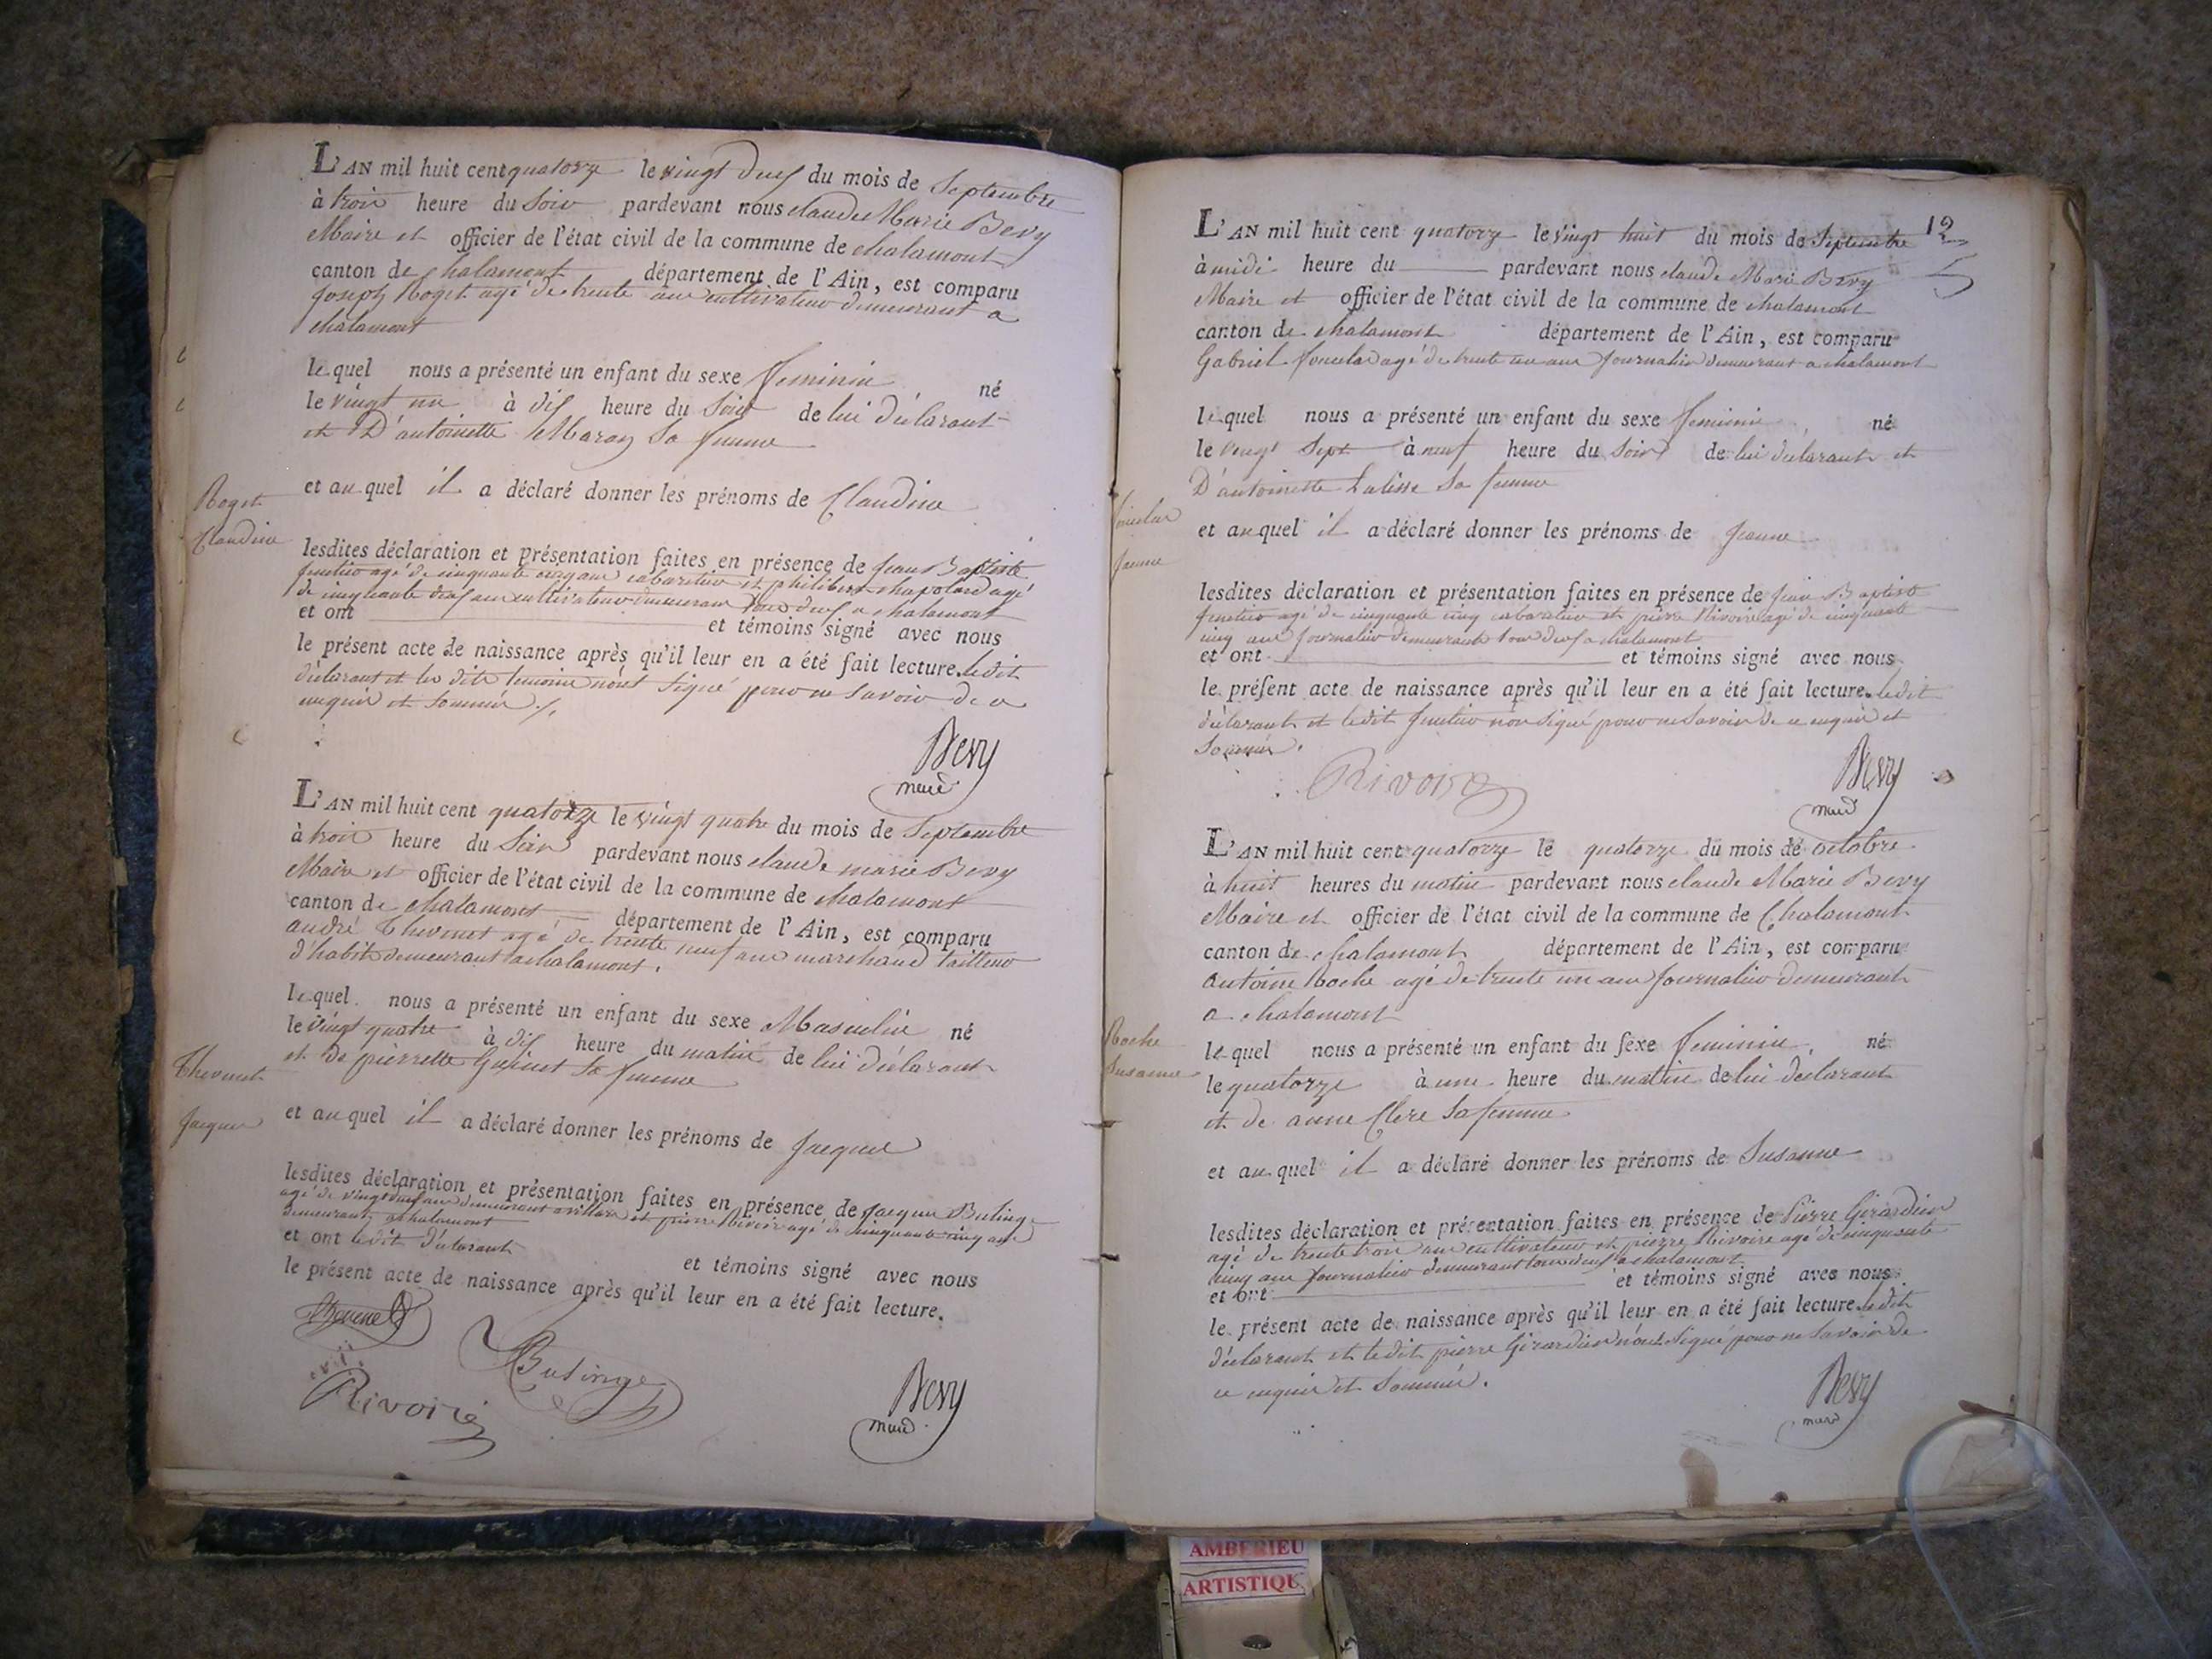 L'AN mil huit cent quatorze le vingt deux du mois de Septembre
à trois heure du Soir pardevant nous claude Marie Bevy
Maire et officier de l'état civil de la commune de chalamont
canton de chalamont département de l'Ain, est comparu
joseph Roget agé de trente ans cultivateur demeurant a
chalamont
lequel nous a présenté un enfant du sexe feminin né
le vingt un à dix heure du Soir de lui déclarant
et D'antoinette Maray Sa femme
Roget
et auquel il a déclaré donner les prénoms de Claudine
Claudine
lesdites déclaration et présentation faites en présence de jean Baptiste
agé de cinquante ans cabaretier et philibert chapolard agé
de cinquante deux ans cultivateur demeurant tous deux a chalamont
et ont et témoins signé avec nous
le présent acte de naissance après qu'il leur en a été fait lecture. ledit
déclarant et les dits temoins n'ont signé pour ne savoir de ce
enquis et sommés ./.
Bevy
maire
L'AN mil huit cent quatorze le vingt quatre du mois de Septembre
à trois heure du Soir pardevant nous claude marie Bevy
Maire et officier de l'état civil de la commune de chalamont
canton de chalamont département de l'Ain, est comparu
andré Thevenet agé de trente neuf ans marchand tailleur
d'habits demeurant a chalamont.
lequel nous a présenté un enfant du sexe Masculin né
le vingt quatre à dix heure du matin de lui déclarant
et de pierrette Sa femme
Thevenet
et auquel il a déclaré donner les prénoms de jacques
jacques
lesdites déclaration et présentation faites en présence de jacques Bulinge
agé de vingt ans demeurant a villars et pierre Rivoire agé de cinquante cinq ans
demeurant a chalamont
et ont ledit déclarant et témoins signé avec nous
le présent acte de naissance après qu'il leur en a été fait lecture.
Thevenet
Bulinge
Rivoire
Bevy
maire
12
L'AN mil huit cent quatorze le vingt huit du mois de Septembre
à midi heure du pardevant nous claude Marie Bevy
Maire et officier de l'état civil de la commune de chalamont
canton de chalamont département de l'Ain, est comparu
Gabriel agé de trente un ans journalier demeurant a chalamont
lequel nous a présenté un enfant du sexe feminin né
le vingt Sept à neuf heure du Soir de lui déclarant et
D'antoinette Sa femme
et auquel il a déclaré donner les prénoms de jeanne
jeanne
lesdites déclaration et présentation faites en présence de jean Baptiste
agé de cinquante cinq cabaretier et pierre Rivoire agé de cinquante
cinq ans journalier demeurants tous deux a chalamont
et ont et témoins signé avec nous
le présent acte de naissance après qu'il leur en a été fait lecture. ledit
déclarant et ledit non signé pour ne savoir de ce enquis et
sommés.
Rivoire
Bevy
maire
L'AN mil huit cent quatorze le quatorze du mois de octobre
à huit heures du matin pardevant nous claude Marie Bevy
Maire et officier de l'état civil de la commune de Chalamont
canton de chalamont département de l'Ain, est comparu
antoine Roche agé de trente un ans journalier demeurant
a chalamont
Roche
lequel nous a présenté un enfant du sexe feminin né
Susanne
le quatorze à une heure du matin de lui declarant
et de anne Clere Sa femme
et auquel il a déclaré donner les prénoms de Susanne
lesdites déclaration et présentation faites en présence de Pierre Girardier
agé de trente trois ans cultivateur et pierre Rivoire agé de cinquante
cinq ans journalier demeurant tous deux a chalamont
et ont et témoins signé avec nous
le présent acte de naissance après qu'il leur en a été fait lecture. ledit
déclarant et ledit pierre Girardier n'ont signé pour ne savoir de
ce enquis et sommés.
Bevy
maire
AMBERIEU
ARTISTIQU